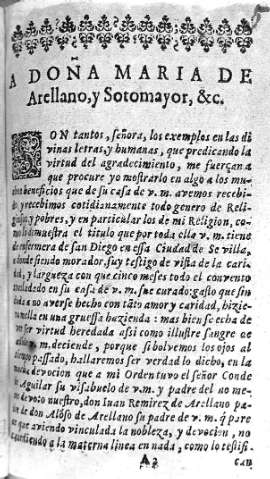 A DOÑA MARIA DE
Arellano, y Sotomayor, &c.
SON tantos, señora, los exemplos en las di
vinas letras, y humanas, que predicando la
virtud del agradecimiento, me fuerçan a
que procure yo mostrarlo en algo a los mu
beneficios que de su casa de v.m. avemos recebi
y recebimos cotidianamente todo genero de Reli
y pobres, y en particular los de mi Religion, co
lo muestra el titulo que por toda ella v.m. tiene
de enfermera de san Diego en essa Ciudad de Sevilla,
donde siendo morador, fuy testigo de vista de la cari
y largueza con que cinco meses todo el convento
trasladado en su casa de v.m. fue curado: gasto que sin
a no averse hecho con tãto amor y caridad, hizie
mella en una gruessa hazienda: mas bien se echa de
ver ser virtud heredada assi como illustre sangre
deciende, porque si bolvemos los ojos al
passado, hallaremos ser verdad lo dicho, en la
devocion que a mi Orden tuvo el señor Conde
Aguilar su visabuelo de v.m. y padre del no me
devoto nuestro, don Iuan Ramirez de Arellano pa
de don Alõso de Arellano su padre de v.m. q̃ pare
que aviendo vinculada la nobleza, y devocion, no
a la materna linea en nada, como lo testifi-
A2 can